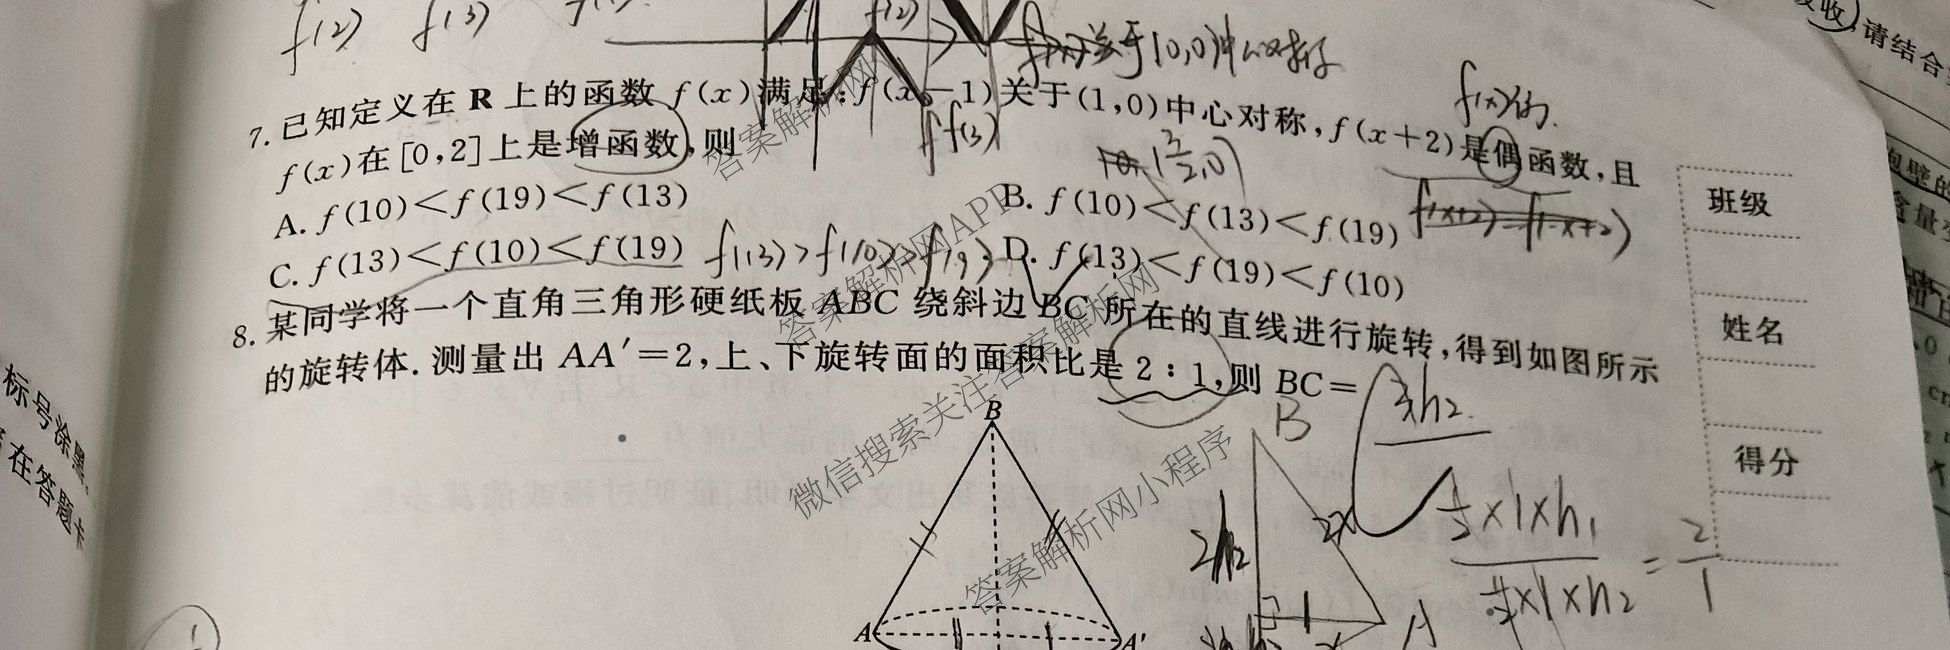 f(2) f(3)
f(2)
f(x)关于(0,0)中心对称
f(x)的
7.已知定义在 R 上的函数 f(x)满足:f(x-1)关于(1,0)中心对称,f(x+2)是偶函数,且
f(x)在[0,2]上是增函数,则
f(3)
A. f(10)<f(19)<f(13)
B. f(10)<f(13)<f(19)
C. f(13)<f(10)<f(19)
D. f(13)<f(19)<f(10)
8.某同学将一个直角三角形硬纸板 ABC 绕斜边 BC 所在的直线进行旋转,得到如图所示
的旋转体.测量出 AA′=2,上、下旋转面的面积比是 2:1,则 BC=
B
A
A′
B
2h2
1
A
½×1×h1
½×1×h2
=
2
1
班级
姓名
得分
请结合
标号涂黑,
在答题卡
答案解析网
答案解析网APP
微信搜索关注答案解析网
答案解析网小程序